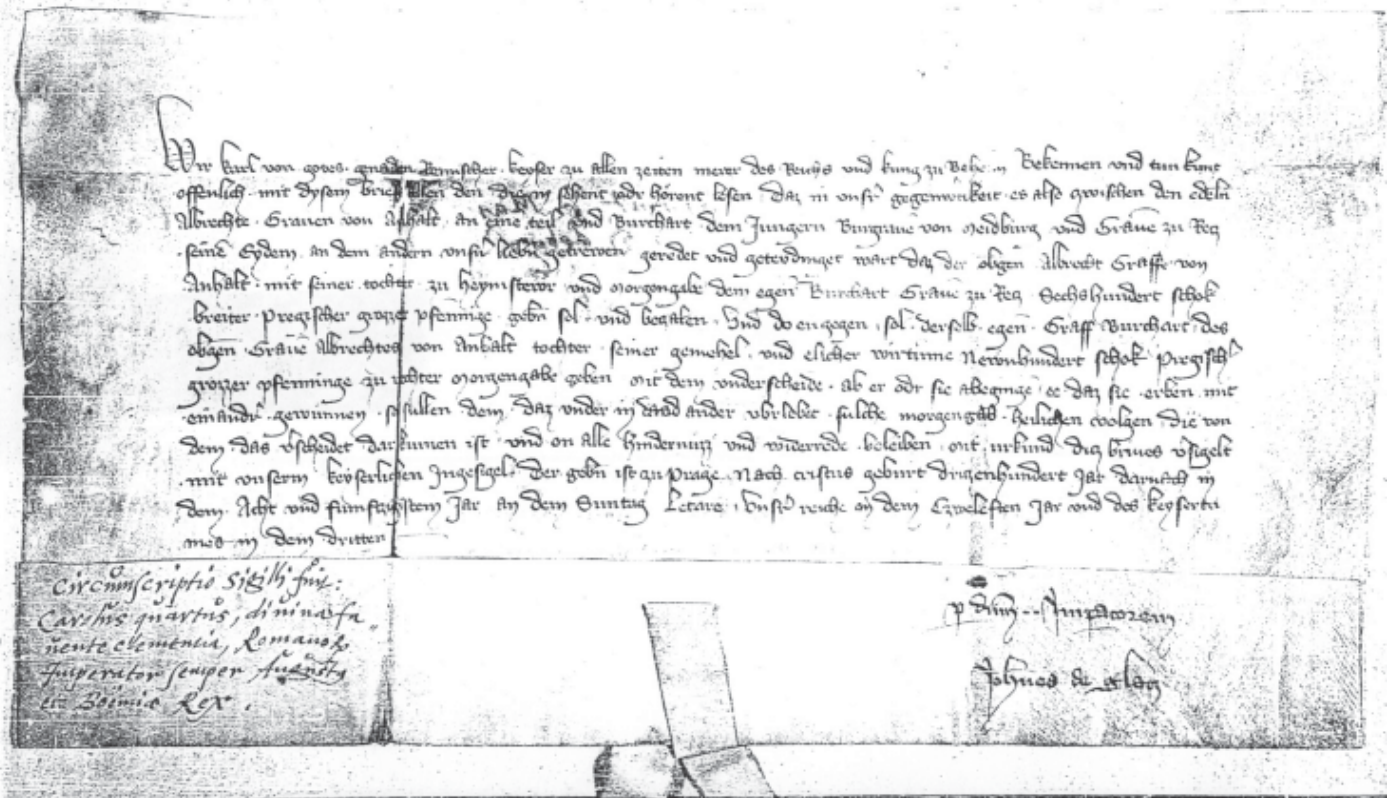 Wir karl von gotes gnaden Romischer keyser zu allen zeiten merer des Reichs und kung zu Behem Bekennen und tun kunt
offenlich mit dysem brief allen den die in sehent oder hörent lesen daz in unsr gegenwürtikeit es also zwischen den edeln
Albrechte Grauen von Anhalt an eine teil und Burchart dem Jungern Burgraue von Meidburg und Graue zu Rez
seine Eydem an dem andern unsn lieben getrewen geredet und geteydinget wart daz der obgen Albrecht Graffe von
Anhalt mit seiner tochter zu heymsteuor und Morgengabe dem egen Burchart Graue zu Rez Sechshundert schok
breiter Pregischer grozzer pfenninge gebn sol und bezalen Und do engegen sol derselb egen Graff Burchart des
obgen Graue Albrechtes von Anhalt tochter seiner gemehel und elicher wirtinne Newnhundert schok Pregisch
grozzer pfenninge zu rechter Morgengabe geben Mit dem underscheide ab er odr sie abeginge ee daz sie erben mit
einandr gewunnen so sullen dem daz under in das ander ubrlebet sulche morgengab volgen die von
dem das vscheidet darkumen ist und on alle hindernuzz und widerrede beleiben Mit urkund diz briues vsigelt
mit unserm keyserlichen Ingesigel Der gebn ist zu Prage Nach cristus geburt drizenhundert Jar darnach in
dem Acht und fumftzigstem Jar an dem Suntag Letare unsr reiche in dem Czweleften Jar und des keysertu
mes in dem dritten
Circumscriptio Sigilli fuit:
Carolus quartus, divina fa„
uente clementia, Romanor
Imperator semper Augusts
et Boemie Rex.
p dnm .. Imperatorem
Johnes de Glacz